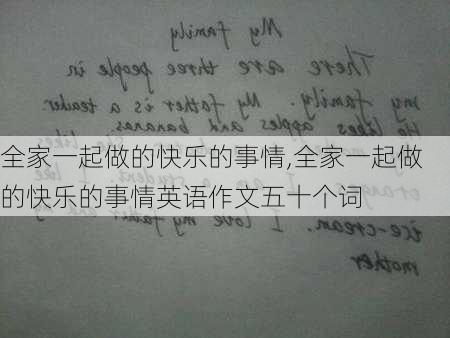 My family
There are three people in
my family. My father is a teacher.
He likes apples and bananas.
全家一起做的快乐的事情,全家一起做
的快乐的事情英语作文五十个词
a student. I like
ice-cream. I love my father and my
mother